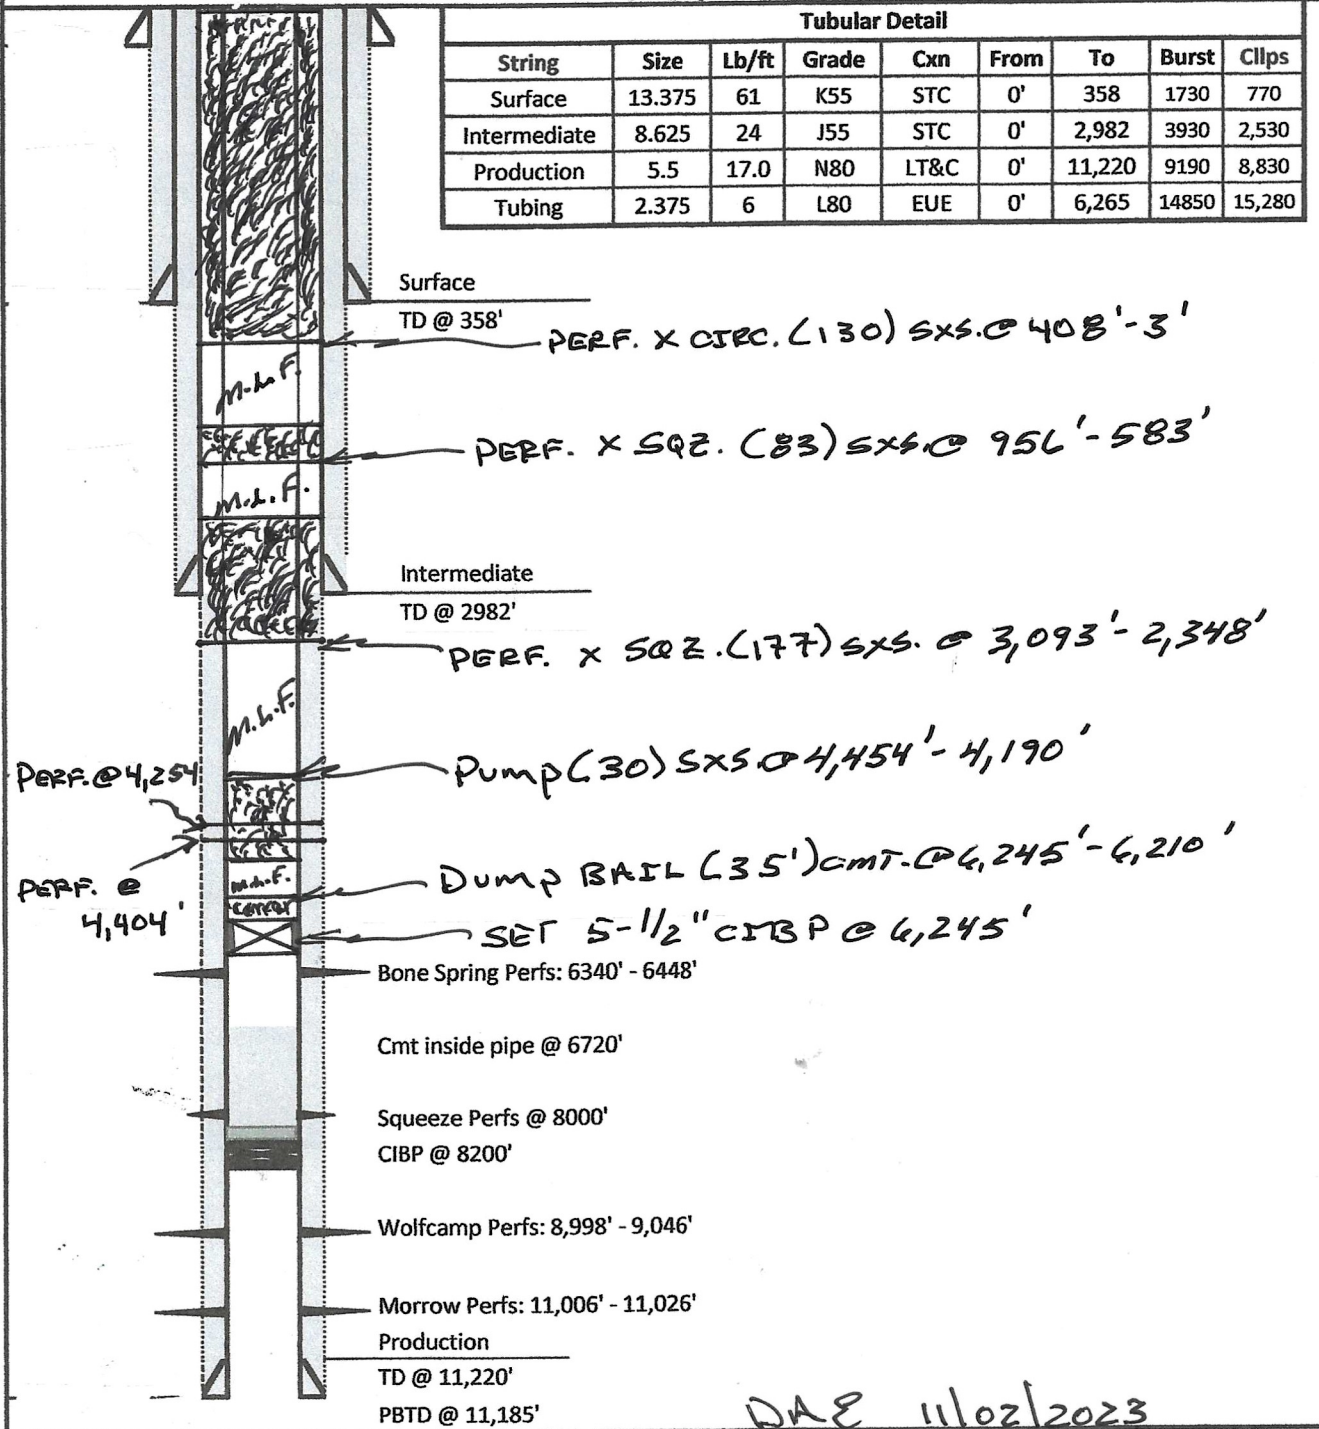 Tubular Detail
String Size Lb/ft Grade Cxn From To Burst Cllps
Surface 13.375 61 K55 STC 0' 358 1730 770
Intermediate 8.625 24 J55 STC 0' 2,982 3930 2,530
Production 5.5 17.0 N80 LT&C 0' 11,220 9190 8,830
Tubing 2.375 6 L80 EUE 0' 6,265 14850 15,280
Surface
TD @ 358'
PERF. X CIRC. (130) SXS. @ 408'-3'
M.L.F.
PERF. X SQZ. (83) SXS. @ 956'-583'
M.L.F.
Intermediate
TD @ 2982'
PERF. X SQZ. (177) SXS. @ 3,093'-2,348'
M.L.F.
Pump (30) SXS. @ 4,454'-4,190'
PERF. @ 4,254
PERF. @
4,404'
M.L.F.
Dump BAIL (35') CMT. @ 6,245'-6,210'
CEMENT
SET 5-1/2" CIBP @ 6,245'
Bone Spring Perfs: 6340' - 6448'
Cmt inside pipe @ 6720'
Squeeze Perfs @ 8000'
CIBP @ 8200'
Wolfcamp Perfs: 8,998' - 9,046'
Morrow Perfs: 11,006' - 11,026'
Production
TD @ 11,220'
PBTD @ 11,185'
DAE 11/02/2023